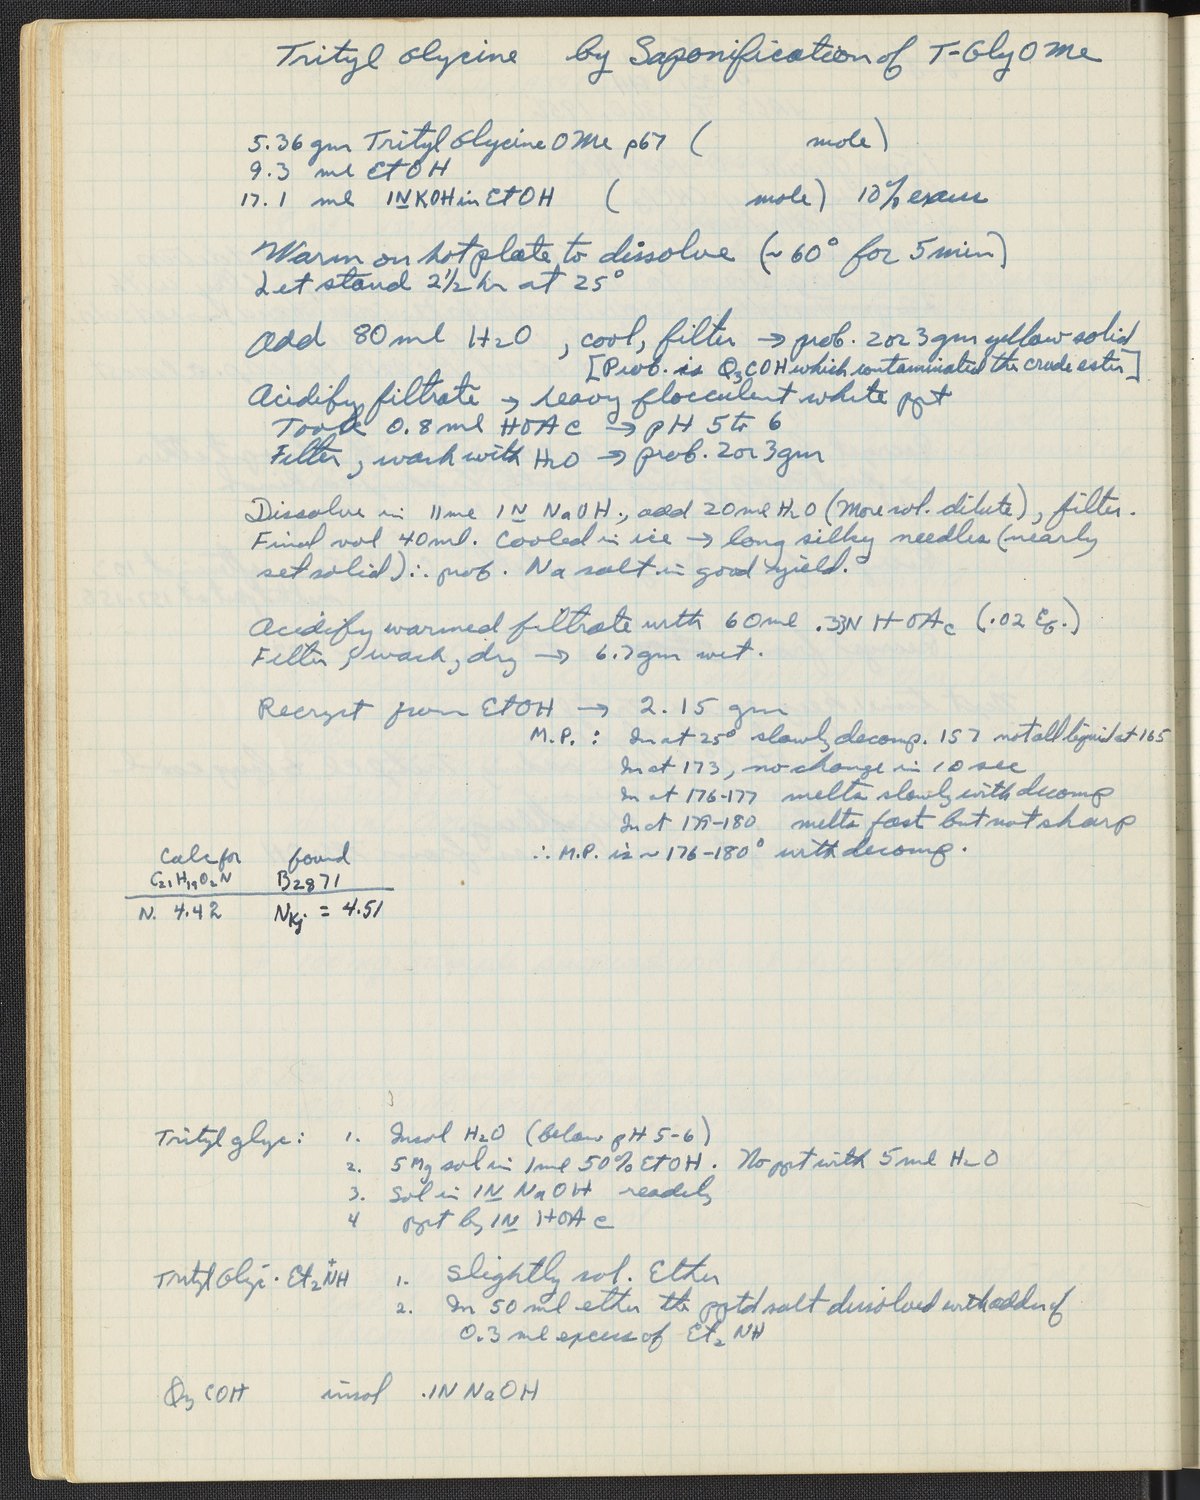 Trityl Glycine by Saponification of T-GlyOMe
5.36 gm Trityl Glycine OMe p67 ( mole)
9.3 ml EtOH
17.1 ml 1N KOH in EtOH ( mole) 10% excess
Warm on hot plate to dissolve (~60° for 5 min)
Let stand 2½ hr at 25°
Add 80 ml H2O, cool, filter → prob. 2 or 3 gm yellow solid
[Prob. is Φ3COH which contaminated the crude ester]
Acidify filtrate → heavy flocculent white ppt
Took 0.8 ml HOAc → pH 5 to 6
Filter, wash with H2O → prob. 2 or 3 gm
Dissolve in 11 ml 1N NaOH, add 20 ml H2O (More sol. dilute), filter.
Final vol 40 ml. Cooled in ice → long silky needles (nearly
set solid) ∴ prob. Na salt in good yield.
Acidify warmed filtrate with 60 ml .33N HOAc (.02 Eq.)
Filter, wash, dry → 6.7 gm wet.
Recryst from EtOH → 2.15 gm
M.P.: In at 25° slowly decomp. 157 not all liquid at 165
In at 173, no change in 10 sec
In at 176-177 melts slowly with decomp
In at 179-180 melts fast but not sharp
∴ M.P. is ~176-180° with decomp.
Calc for found
C21H19O2N B2871
N. 4.42 NKj. = 4.51
Trityl glyc: 1. Insol H2O (below pH 5-6)
2. 5 Mg sol in 1 ml 50% EtOH. No ppt with 5 ml H2O
3. Sol in 1N NaOH readily
4 ppt by 1N HOAc
Trityl Glyc · Et2N+H 1. Slightly sol. Ether
2. In 50 ml ether the pptd salt dissolved with addn of
0.3 ml excess of Et2NH
Φ3COH insol .1N NaOH